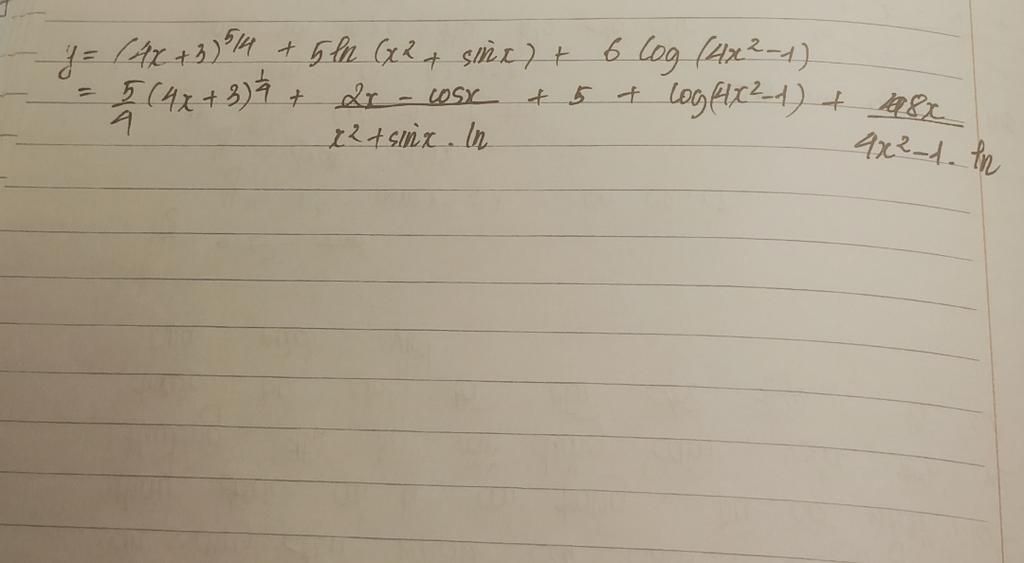 y = (4x+3)^5/4 + 5 ln (x² + sinx) + 6 log (4x²-1)
= 5/4 (4x+3)^1/4 + (2x - cosx)/(x² + sinx . ln) + 5 + log(4x²-1) + 8x/(4x²-1. ln)